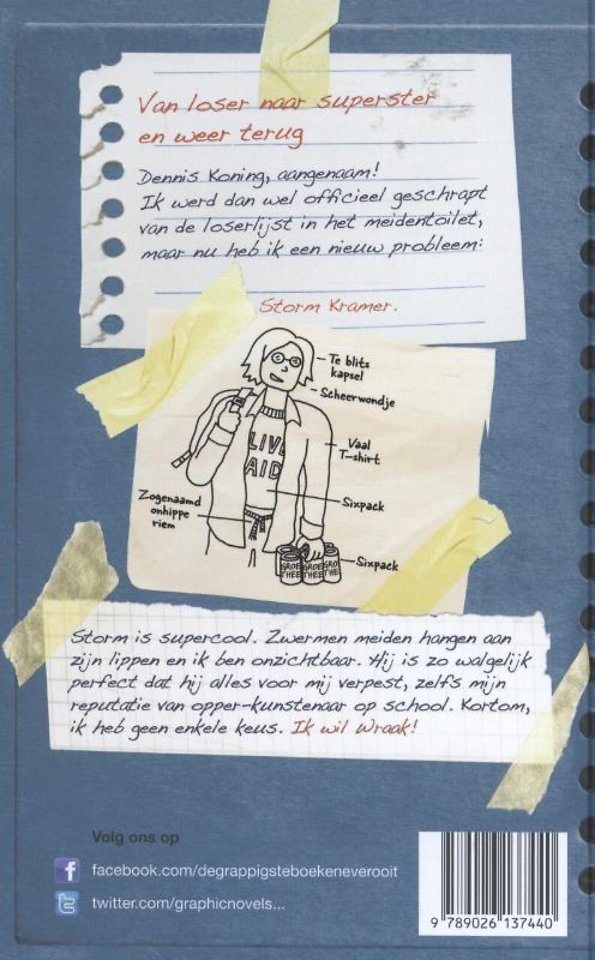 Van loser naar superster
en weer terug
Dennis Koning, aangenaam!
Ik werd dan wel officieel geschrapt
van de loserlijst in het meidentoilet,
maar nu heb ik een nieuw probleem:
Storm Kramer.
Te blits
kapsel
Scheerwondje
LIVE
AID
Vaal
T-shirt
Zogenaamd
onhippe
riem
Sixpack
GROE GROE GRO
THEE THEE THE
Sixpack
Storm is supercool. Zwermen meiden hangen aan
zijn lippen en ik ben onzichtbaar. Hij is zo walgelijk
perfect dat hij alles voor mij verpest, zelfs mijn
reputatie van opper-kunstenaar op school. Kortom,
ik heb geen enkele keus. Ik wil wraak!
Volg ons op
f facebook.com/degrappigsteboekeneverooit
t twitter.com/graphicnovels...
9 789026 137440